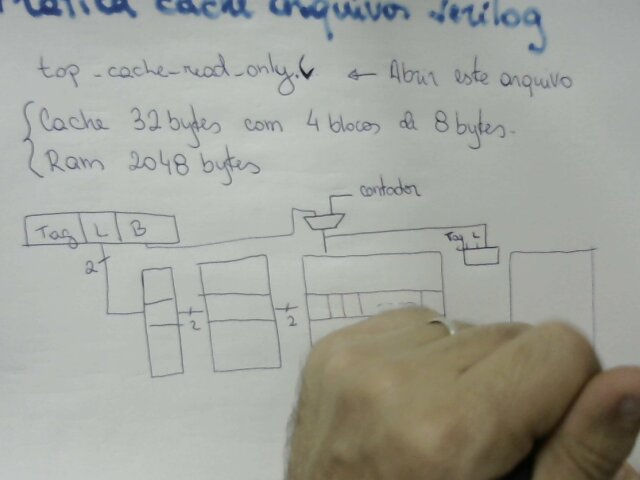 Prática cache arquivos verilog
top_cache_read_only.v ← Abrir este arquivo
Cache 32 bytes com 4 blocos de 8 bytes.
Ram 2048 bytes
contador
Tag L B
Tag L
2
2
2